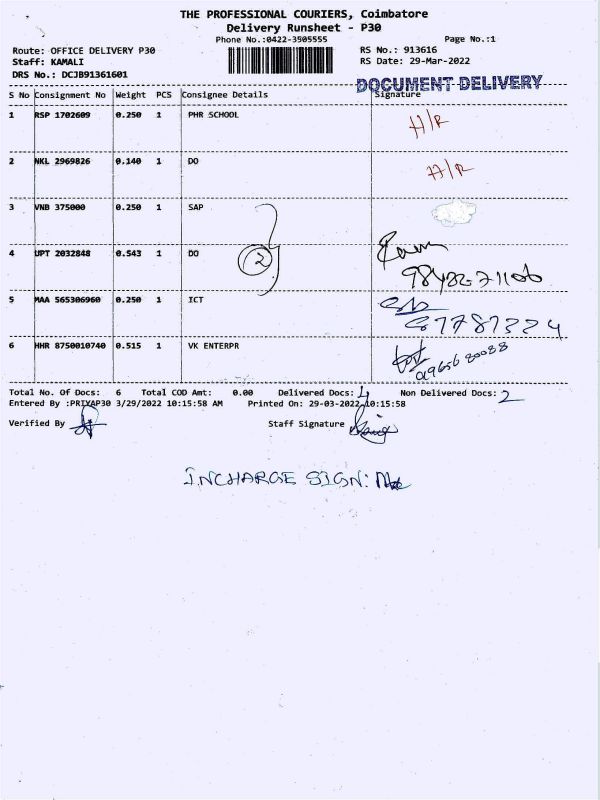 THE PROFESSIONAL COURIERS, Coimbatore
Delivery Runsheet - P30
Phone No.:0422-3505555
Page No.:1
Route: OFFICE DELIVERY P30
RS No.: 913616
Staff: KAMALI
RS Date: 29-Mar-2022
DRS No.: DCJB91361601
DOCUMENT DELIVERY
S No Consignment No Weight PCS Consignee Details Signature
1 RSP 1702609 0.250 1 PHR SCHOOL H/R
2 NKL 2969826 0.140 1 DO H/R
3 VNB 375000 0.250 1 SAP
4 UPT 2032848 0.543 1 DO 2
5 MAA 565306960 0.250 1 ICT
6 HHR 8750010740 0.515 1 VK ENTERPR
Total No. Of Docs: 6 Total COD Amt: 0.00 Delivered Docs: 4 Non Delivered Docs: 2
Entered By :PRIYAP30 3/29/2022 10:15:58 AM Printed On: 29-03-2022 10:15:58
Verified By Staff Signature
INCHARGE SIGN: